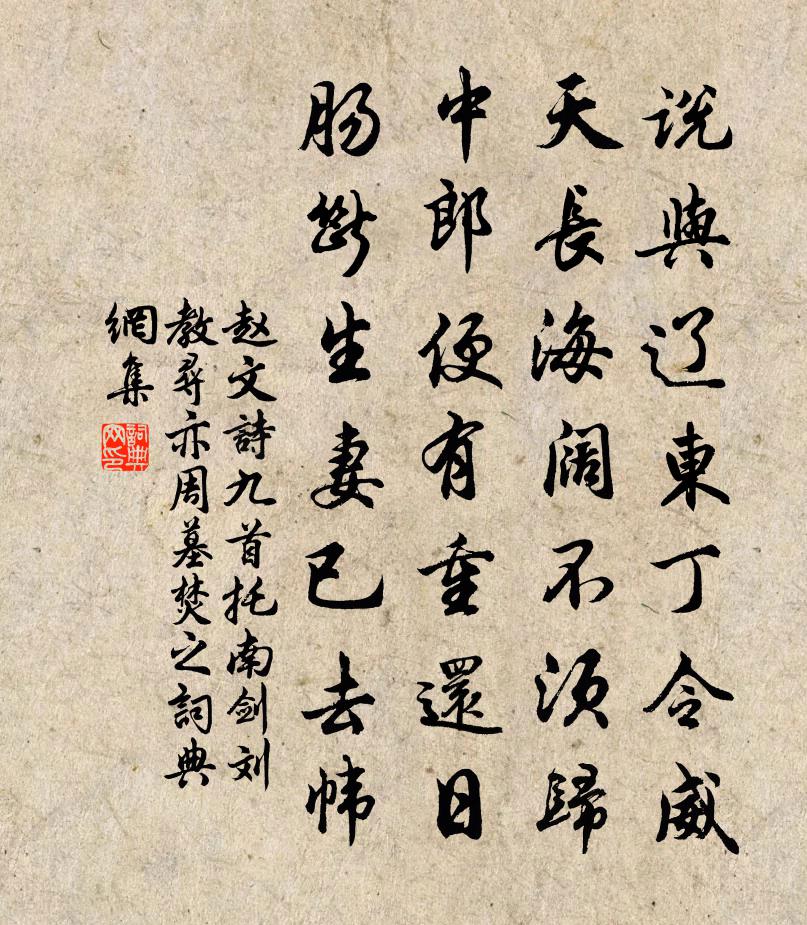 说與辽東丁令威
天長海阔不须歸
中郎便有重還日
肠斷生妻已去帏
赵文詩九首托南剑刘
教尋亦周墓焚之詞典
網集
詞典网印